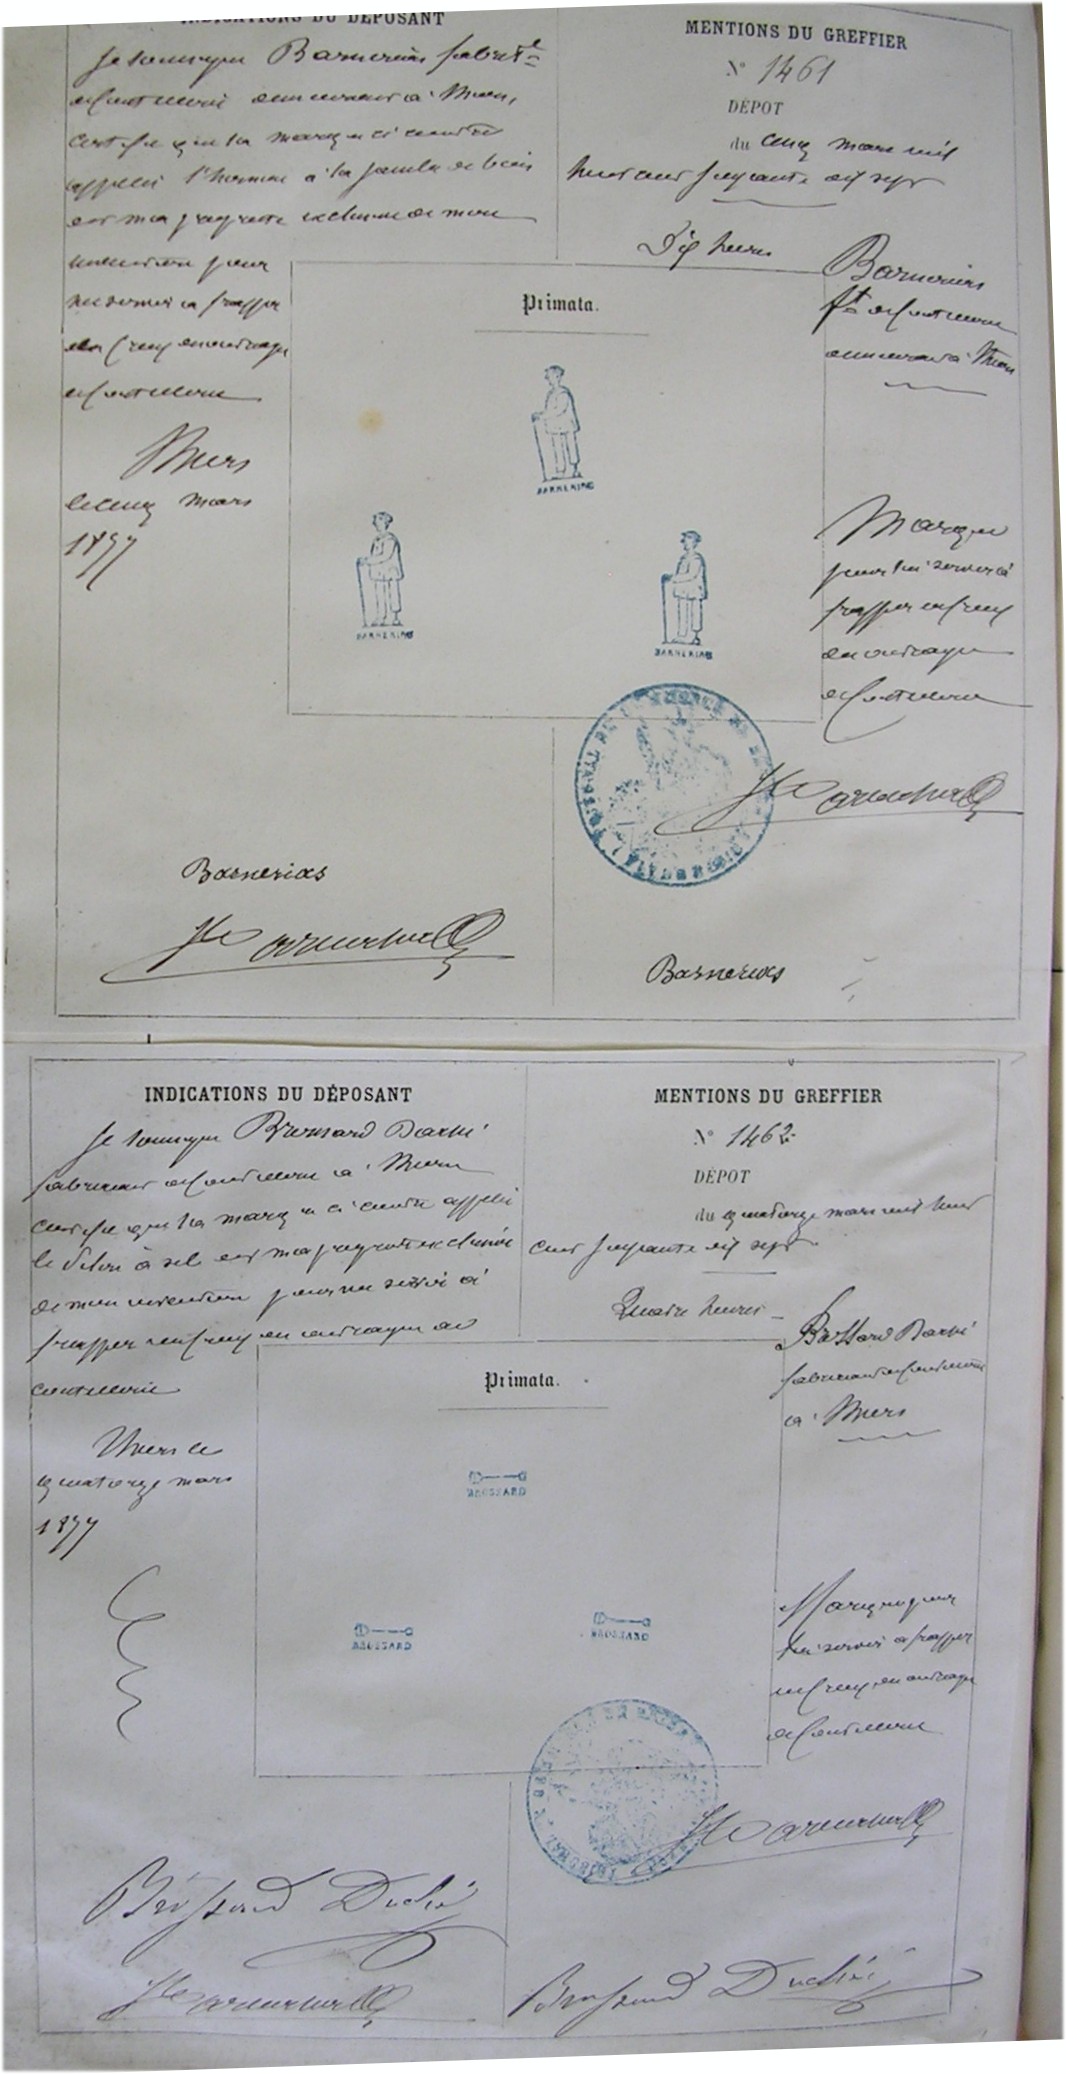 INDICATIONS DU DÉPOSANT
Je soussigné Barnerias fabrt
de coutellerie demeurant à Thiers,
certifie que la marque ci contre
appelée l'homme à la jambe de bois
est ma propriété exclusive de mon
invention pour
me servir à frapper
en creux en ouvrage
de coutellerie
Thiers
le cinq mars
1877
MENTIONS DU GREFFIER
N° 1461
DÉPOT
du cinq mars mil
huit cent soixante dix sept
Dix heures
Primata.
BARNERIAS
BARNERIAS
BARNERIAS
Barnerias
ft de coutellerie
demeurant à Thiers
Marque
pour lui servir à
frapper en creux
en ouvrage
de coutellerie
Barnerias
Barnerias
INDICATIONS DU DÉPOSANT
Je soussigné Brossard
fabricant de coutellerie à Thiers
certifie que la marque ci contre appelée
à sel est ma propriété exclusive
de mon invention pour me servir à
frapper en creux en ouvrage de
coutellerie
Thiers le
quatorze mars
1877
MENTIONS DU GREFFIER
N° 1462
DÉPOT
du quatorze mars mil huit
cent soixante dix sept
Quatre heures
Primata.
BROSSARD
BROSSARD
BROSSARD
Brossard
fabricant de coutellerie
à Thiers
Marque pour
lui servir à frapper
en creux en ouvrage
de coutellerie
Brossard
Brossard